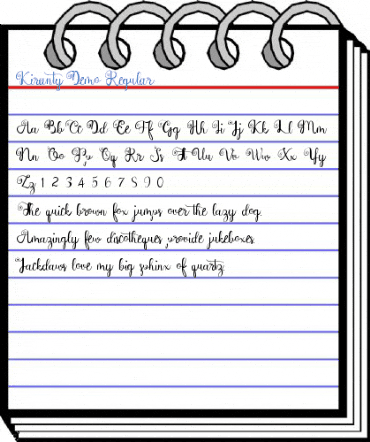 Kiranty Demo Regular
Aa Bb Cc Dd Ee Ff Gg Hh Ii Jj Kk Ll Mm
Nn Oo Pp Qq Rr Ss Tt Uu Vv Ww Xx Yy
Zz 1 2 3 4 5 6 7 8 9 0
The quick brown fox jumps over the lazy dog.
Amazingly few discotheques provide jukeboxes.
Jackdaws love my big sphinx of quartz.